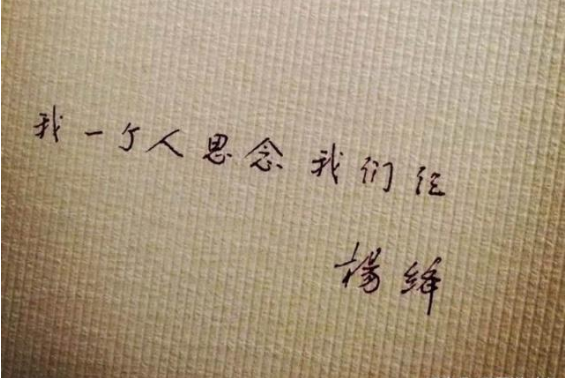 我一个人思念我们仨
楊絳